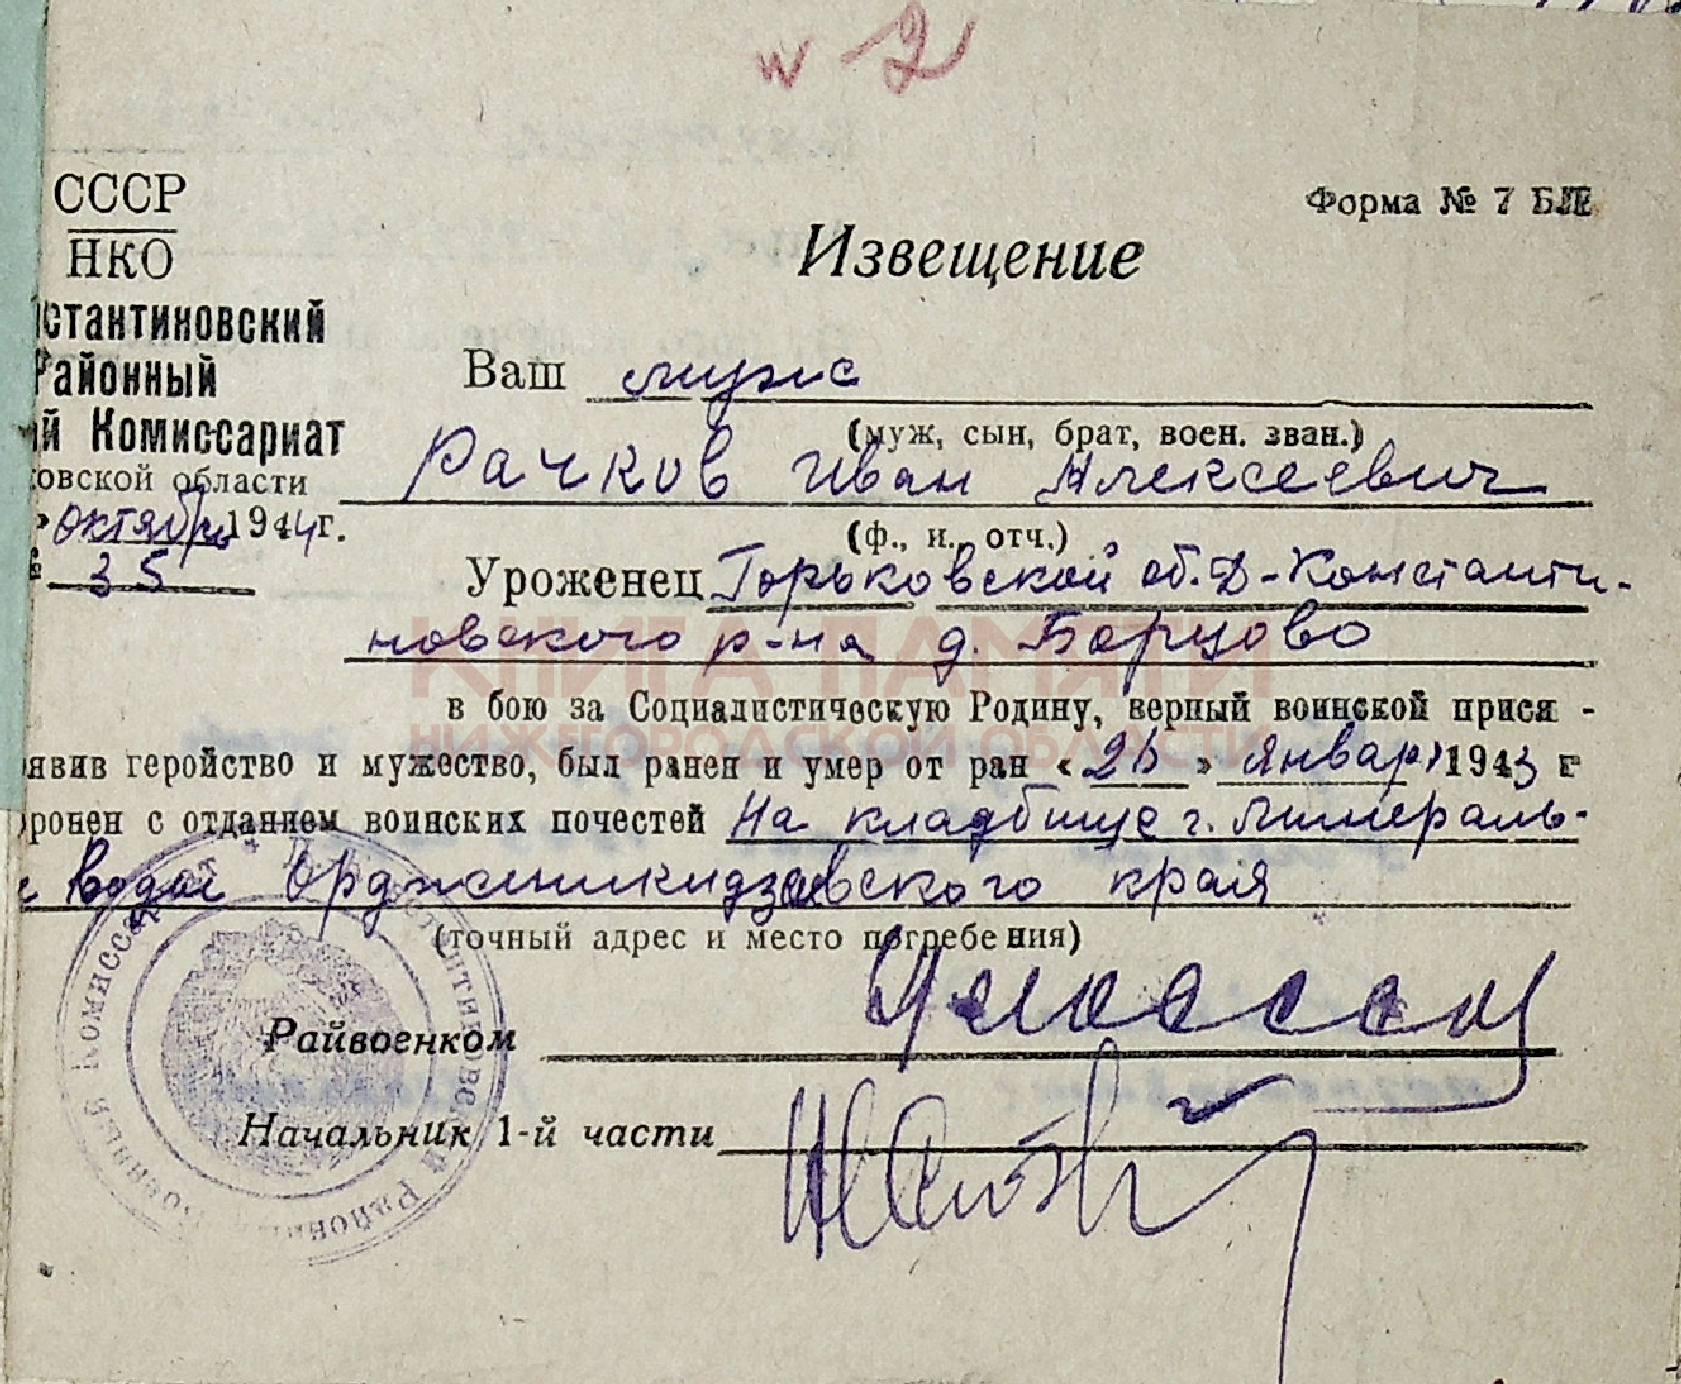 № 2
СССР
НКО
Форма № 7 БЛЕ
Извещение
нстантиновский
Районный
ий Комиссариат
ковской области
» октября 1944 г.
№ 35
Ваш муж
(муж, сын, брат, воен. зван.)
Рачков Иван Алексеевич
(ф., и., отч.)
Уроженец Горьковской об. Д-Константи-
новского р-на д. Борцово
КНИГА ПАМЯТИ
НИЖЕГОРОДСКОЙ ОБЛАСТИ
в бою за Социалистическую Родину, верный воинской прися -
оявив геройство и мужество, был ранен и умер от ран « » январ 1943 г
оронен с отданием воинских почестей На кладбище г. Минераль-
е воды Орджоникидзевского края
(точный адрес и место погребения)
Райвоенком
Начальник 1-й части